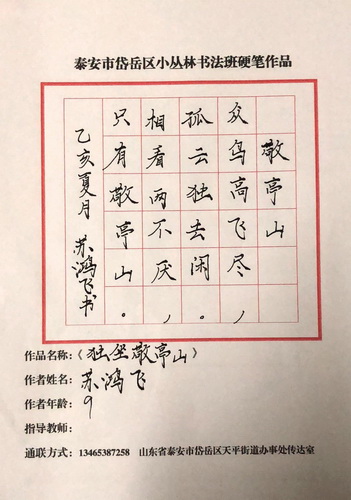 泰安市岱岳区小丛林书法班硬笔作品
敬亭山
众鸟高飞尽，
孤云独去闲。
相看两不厌，
只有敬亭山。
乙亥夏月 苏鸿飞书
作品名称：《独坐敬亭山》
作者姓名：苏鸿飞
作者年龄：9
指导教师：
通联方式：13465387258 山东省泰安市岱岳区天平街道办事处传达室